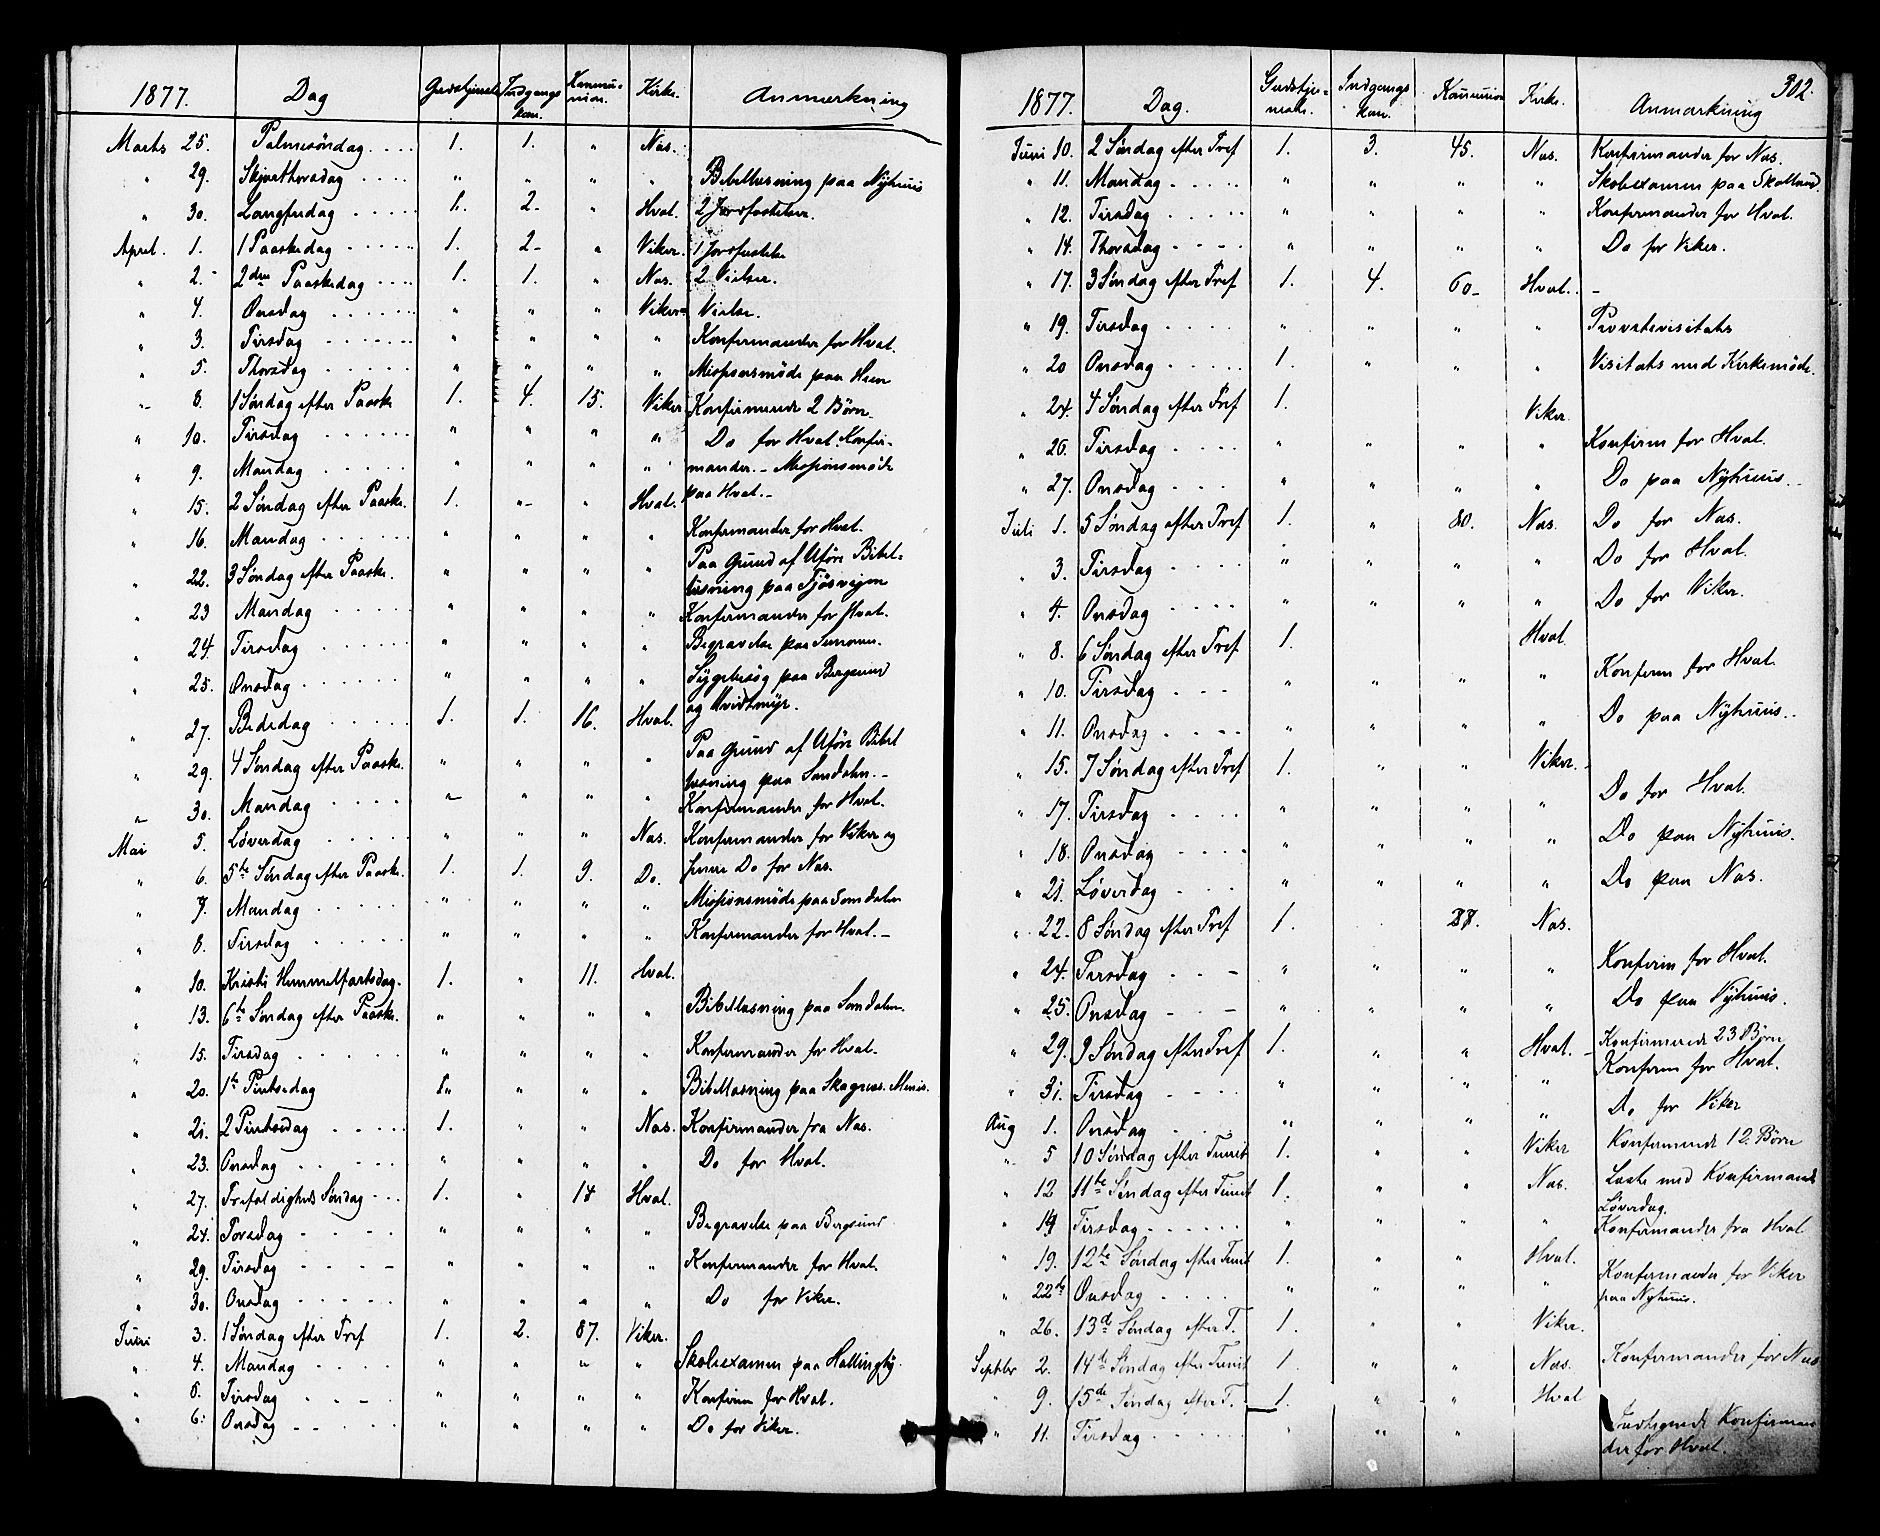 1877. Dag Gudstjeneste Indgangs kon. Kommunion. Kirke. Anmærkning
Marts 25. Palmesøndag . . . . 1. 1. " Nas.
" 29. Skjærthorsdag . . . . " " " " Bibellæsning paa Nyhuus
" 30. Langfredag . . . . 1. 2- " Hval. 2 Jordfæstelser.
April. 1. 1 Paaskedag . . . . . 1. 2- " Viker. 1 Jordfæstelse
" 2. 2den Paaskedag . . . 1. 1. " Nas. 2 Vielser.
" 4. Onsdag . . . . . . " " " Viker- Vielse.
" 3. Tirsdag . . . . . . " " " " Konfirmander for Hval.
" 5. Thorsdag . . . . . " " " " Missionsmøde paa Hein
" 8. 1 Søndag efter Paaske 1. 4. 15. Viker Konfirmerede 2 Børn
" 10. Tirsdag . . . . . . " " " " Do for Hval. Konfir-
" 9. Mandag . . . . . . " " " " mander. - Missionsmøde
" 15. 2 Søndag efter Paaske. 1. "- " Hval. paa Hval.-
" 16. Mandag . . . . . . " " " " Konfirmander for Hval.
" 22. 3 Søndag efter Paaske. " " " " Paa Grund af Uføre Bibel-
læsning paa Tjøsvejen
" 23 Mandag . . . . . " " " " Konfirmander for Hval.
" 24. Tirsdag . . . . . " " " " Begravelse paa
" 25. Onsdag . . . . . . " " " " Sygebesøg paa Bergsund
og Hvidtmyr.
" 27. Bededag . . . . . 1. 1. 16. Hval.
" 29. 4 Søndag efter Paaske. " " " " Paa Grund af Uføre Bibel
læsning paa Somdalen.-
" 30. Mandag . . . . . " " " " Konfirmander for Hval.
Mai 5. Løverdag . . . . . " " " Nas. Konfirmander for Viker og
" 6. 5te Søndag efter Paaske. 1. 1. 9. Do. Do for Nas.
" 7. Mandag . . . . . " " " " Missionsmøde paa Somdalen
" 8. Tirsdag . . . . . " " " " Konfirmander for Hval.-
" 10. Kristi Himmelfartsdag. 1. " 11. Hval.
" 13. 6te Søndag efter Paaske. " " " " Bibellæsning paa Somdalen.
" 15. Tirsdag . . . . . " " " " Konfirmander for Hval.
" 20. 1te Pintsedag " " " Bibellæsning paa Skagnæs.
" 21. 2 Pintsedag . . . . . 1. " " Nas. Konfirmander fra Nas.
" 23. Onsdag . . . . . " " " " Do for Hval.
" 27. Trefoldigheds Søndag . . . 1. " 14 Hval.
" 24. Torsdag . . . . . " " " " Begravelse paa Bergsund
" 29. Tirsdag . . . . . " " " " Konfirmander for Hval.
" 30. Onsdag . . . . . " " " " Do for Viker.
Juni 3. 1 Søndag efter Tref 1. 2. 87. Viker.
" 4. Mandag . . . . " " " " Skolexamen paa Hallingby.
" 5. Tirsdag . . . . " " " " Konfirm for Hval.
" 6. Onsdag . . . . " " " " Do for Viker.
302.
1877. Dag. Gudstjeneste. Indgangs kon. Kommunion Kirke. Anmærkning
Juni 10. 2 Søndag efter Tref 1. 3. 45. Nas. Konfirmander for Nas.
" 11. Mandag . . . . . " " " " Skolexamen paa Skolland.
" 12. Tirsdag . . . . . " " " " Konfirmander for Hval.
" 14. Thorsdag . . . . " " " " Do for Viker.
" 17. 3 Søndag efter Tref 1. 4. 60- Hval. . -
" 19. Tirsdag . . . . . " " " " Provstevisitats
" 20 Onsdag . . . . . 1. " " " Visitats med Kirkemøde.
" 24. 4 Søndag efter Tref 1. Viker.
" 26. Tirsdag . . . . " " " " Konfirm for Hval.
" 27. Onsdag . . . . " " " " Do paa Nyhuus..
Juli 1. 5 Søndag efter Tref 1. " 80. Nas. Do for Nas.
" 3. Tirsdag . . . . " " " " Do for Hval.
" 4. Onsdag . . . . " " " " Do for Viker.
" 8. 6 Søndag efter Tref 1. Hval.
" 10. Tirsdag . . . " " " " Konfirm for Hval.
" 11. Onsdag . . . . " " " " Do paa Nyhuus..
" 15. 7 Søndag efter Tref 1. " " Viker.
" 17. Tirsdag . . . . " " " " Do for Hval.
" 18. Onsdag . . . . " " " " Do paa Nyhuus.
" 21. Løverdag . . . " " " " Do paa Nas.
" 22. 8 Søndag efter Tref 1. 28. Nas.
" 24. Tirsdag . . - " " " " Konfirm for Hval.
" 25. Onsdag . . - " " " " Do paa Nyhuus.
" 29. 9 Søndag efter Tref 1. " " Hval. - Konfirmerede 23 Børn
" 31. Tirsdag . . . . " " " " Konfirm for Hval.
Aug 1. Onsdag . . . . " " " " Do for Viker
" 5 10 Søndag efter Trinit 1. " " Viker Konfirmerede 12. Børn
" 12 11te Søndag efter Trinit 1. " " Nas. Læste med Konfirmand
Løverdag.
" 14 Tirsdag . . . . . . " " " " Konfirmander fra Hval
" 19. 12te Søndag efter Trinit 1. " " Hval.
" 22de Onsdag . . . . . " " " " Konfirmander for Viker
paa Nyhuus.
" 26. 13de Søndag efter T. 1. " " Viker.
Septbr 2. 14de Søndag efter Trinit 1. " " Nas. Konfirmander for Nas
" 9. 15de Søndag efter T. 1. " " Hval
" 11. Tirsdag . . . . . . " " " Indtegnede Konfirman
der for Hval.